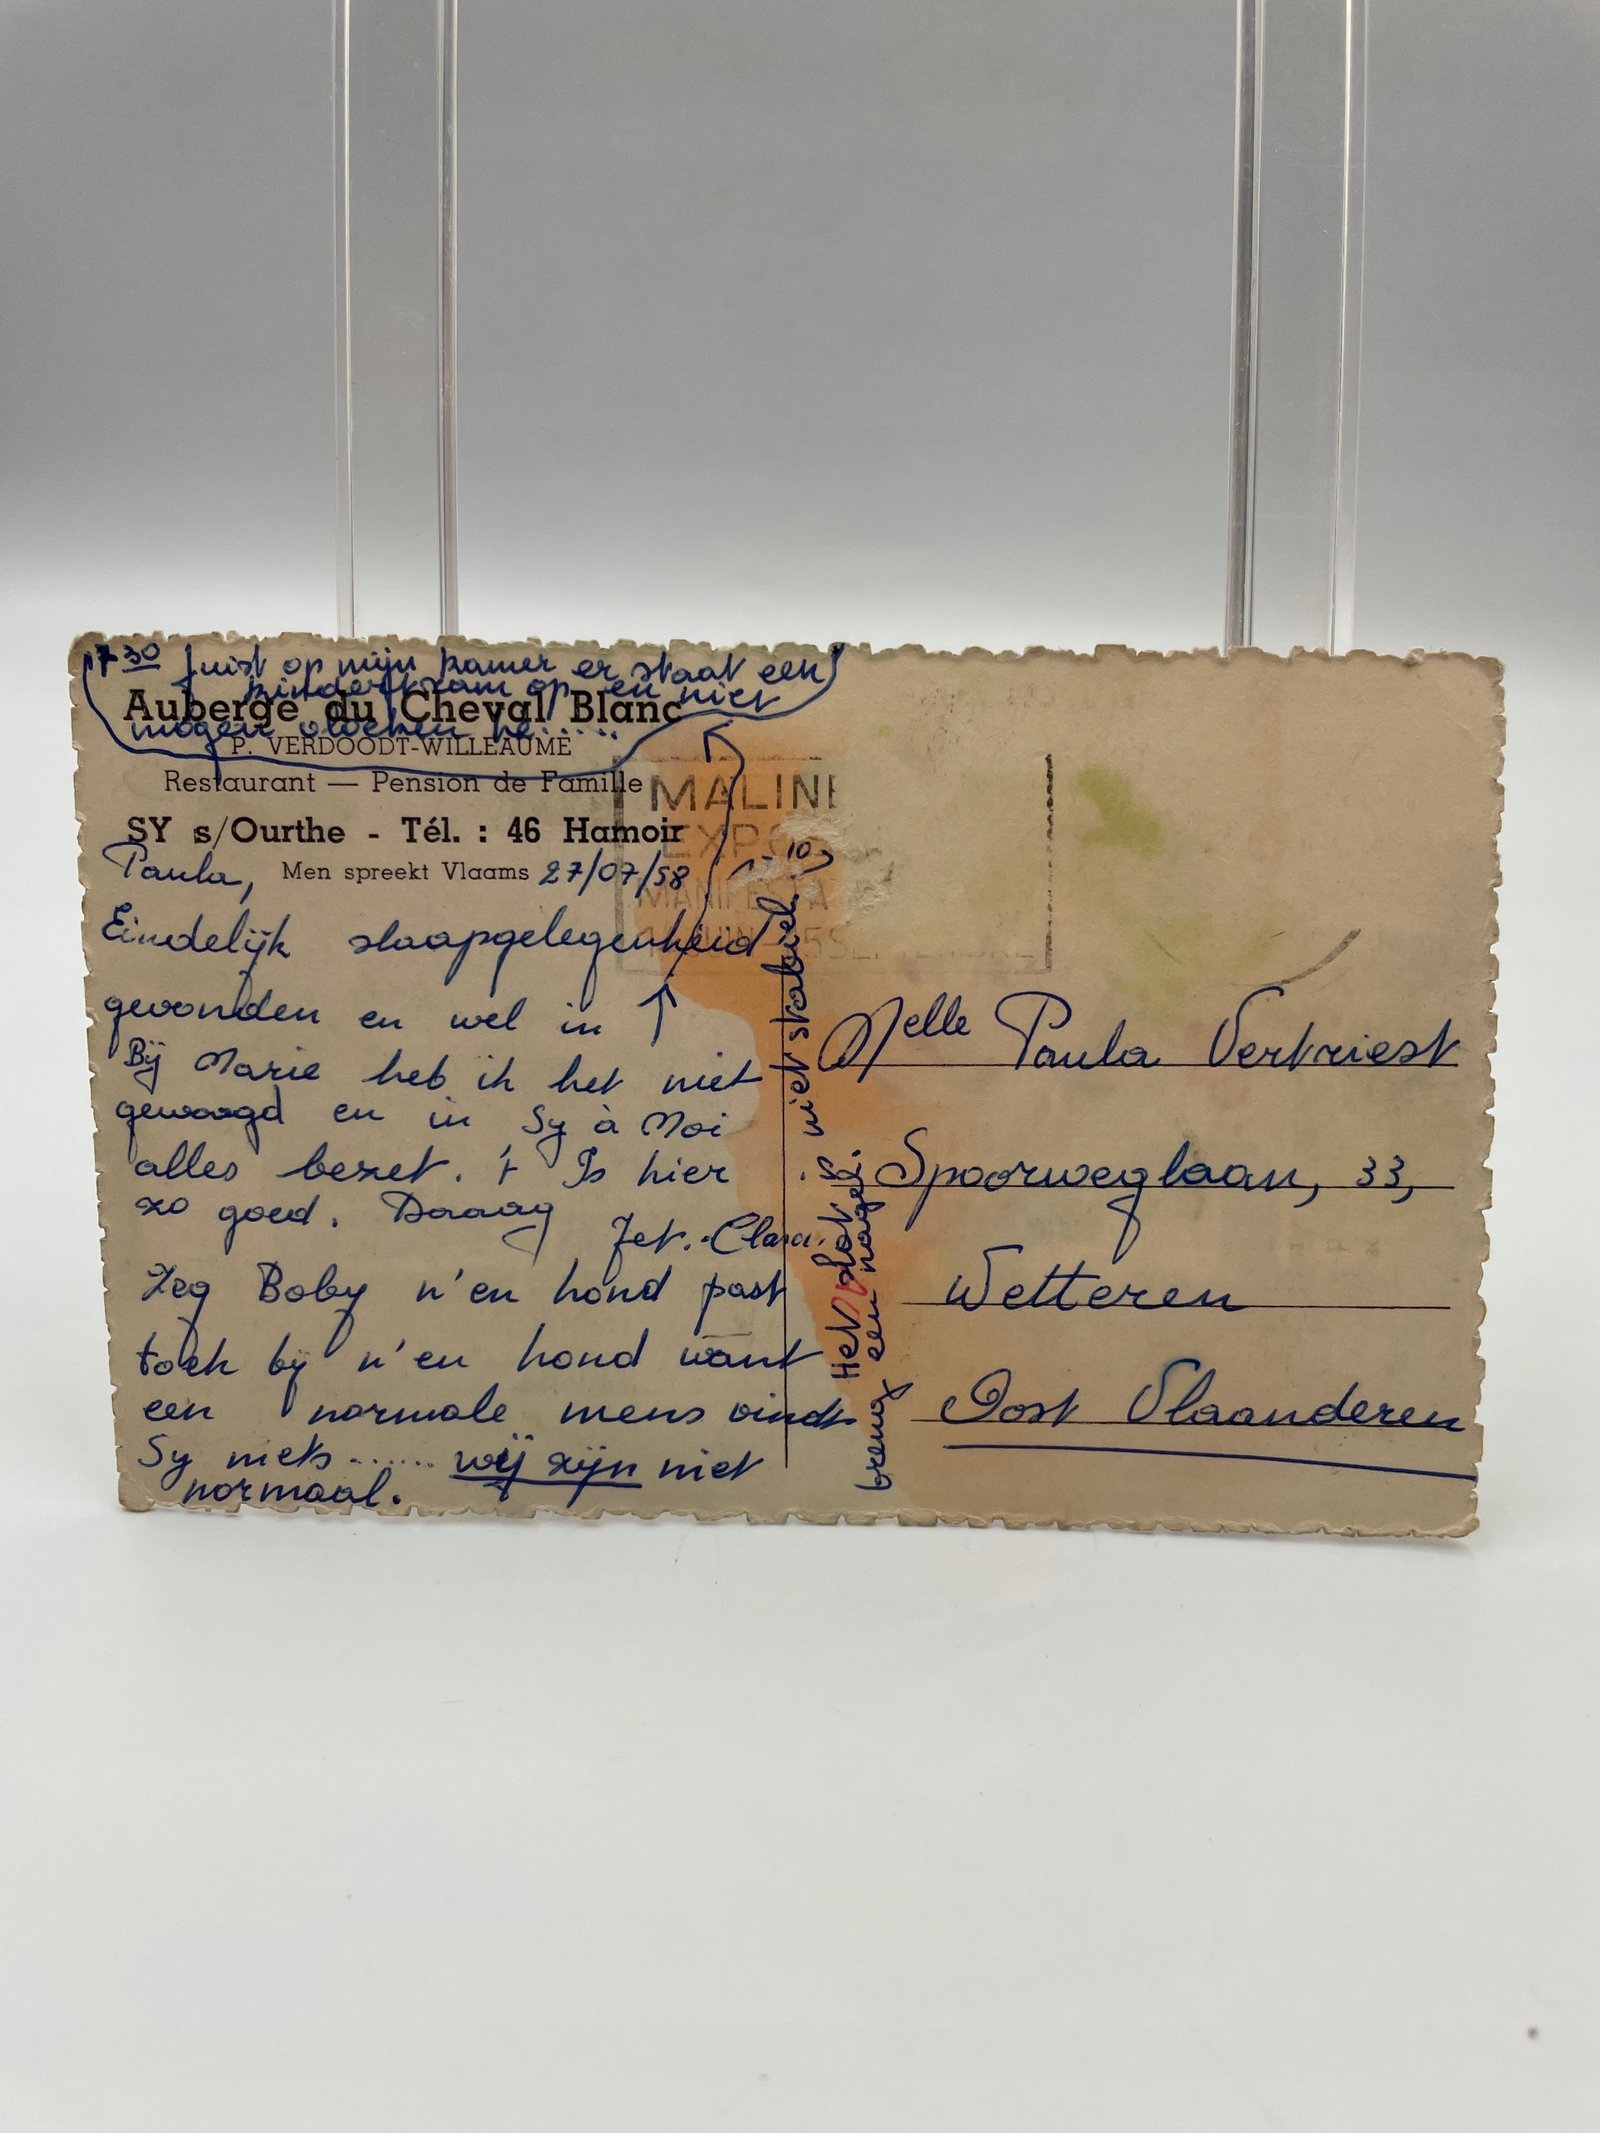 7 30 Juist op mijn kamer er staat een
kinderkraam op en niet
mogen vloeken hé......
Auberge du Cheval Blanc
P. VERDOODT-WILLEAUME
Restaurant — Pension de Famille
SY s/Ourthe - Tél. : 46 Hamoir
Men spreekt Vlaams 27/07/58
Paula,
Eindelijk slaapgelegenheid
gevonden en wel in ↑
Bij Marie heb ik het niet
gewaagd en in Sy à Moi
alles bezet. 't Is hier
zo goed. Daaag
Jet.-Clara.
Zeg Boby n'en hond past
toch bij n'en hond want
een normale mens vindt
Sy niets...... wij zijn niet
normaal.
MALINE
EXPO
MANIFESTA
JUIN 5SEPTEMBRE
-10
Het slot is niet stabiel
breng een nagel.
Melle Paula Vertriest
Spoorweglaan, 33,
Wetteren
Oost Vlaanderen